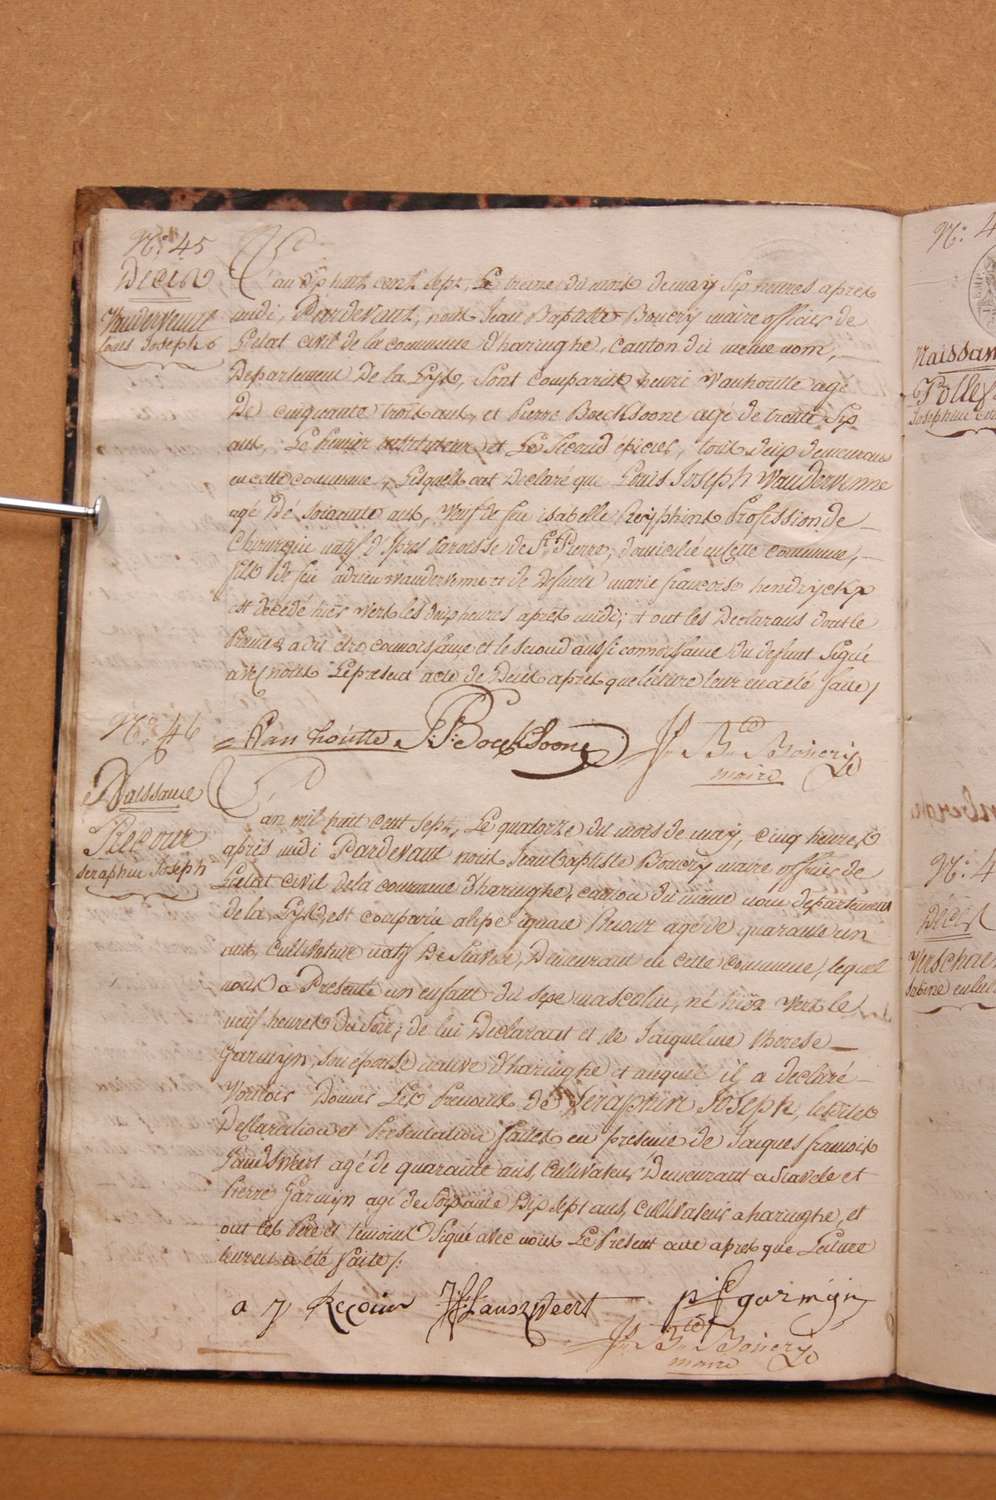 N.º 45
Décès
Vandervenne
Louis Joseph
L'an dix huit cent sept, Le treize du mois de may six heures après
midi, Pardevant, nous Jean Baptiste Bouery maire officier de
L'etat civil de la commune d'haringhe, canton du même nom,
Departement De la Lys, sont comparus henri Vanhoutte agé
De cinquante trois ans, et Pierre Boecksoone agé de trente six
ans, Le premier instituteur et Le second épicier, tous deux demeurans
en cette commune, Lesquels ont Déclaré que Louis Joseph Vandervenne
agé De soixante ans, Veuf de feu isabelle Profession de
Chirurgien natif d'Ipres Paroisse de St. Pierre, domicilié en cette commune,
fils de feu adrien vandervenne et de defunte marie françoise hendryckx
est décédé hier vers les deux heures après midi; et ont les Déclarans dont le
Premier a dit etre connoissance et le second aussi connoissance du defunt Signé
avec nous Le present acte de Décès après que lecture leur en a été faite/
Van houtte P: J: Boecksoone J.n B.te Bouery
maire
N.º 46
Naissance
Recour
Seraphin Joseph
L'an mil huit cent sept, Le quatorze du mois de may, cinq heures
après midi Pardevant nous Jean baptiste Bouery maire officier de
L'etat civil de la commune d'haringhe, canton du même nom departement
de la Lys, est comparu ignace Recour agé de quarante un
ans, Cultivateur natif De Stavele, Demeurant en cette commune, lequel
nous a Presenté un enfant du sexe masculin, né hier vers le
neuf heures du Soir, de lui Déclarant et de Jacqueline Therese
Garmyn, son epouse native d'haringhe et auquel il a declaré
Vouloir Donner Les Prenoms de Seraphin Joseph, lesdites
Declaration et Presentation faites en presence de Jacques françois
Landsweert agé de quarante ans, Cultivateur Demeurant a Stavele et
Pierre Garmyn agé de soixante dix sept ans, cultivateur a haringhe, et
ont les Père et temoins Signé avec nous Le Present acte après que Lecture
leur en a été faite/:
a J Recour J: f: Lansweert p: f garmijn
J.n B.te Bouery
maire
N.º 4
Naissan
Josephine
N.º 4
Décès
Verschae
Sabine